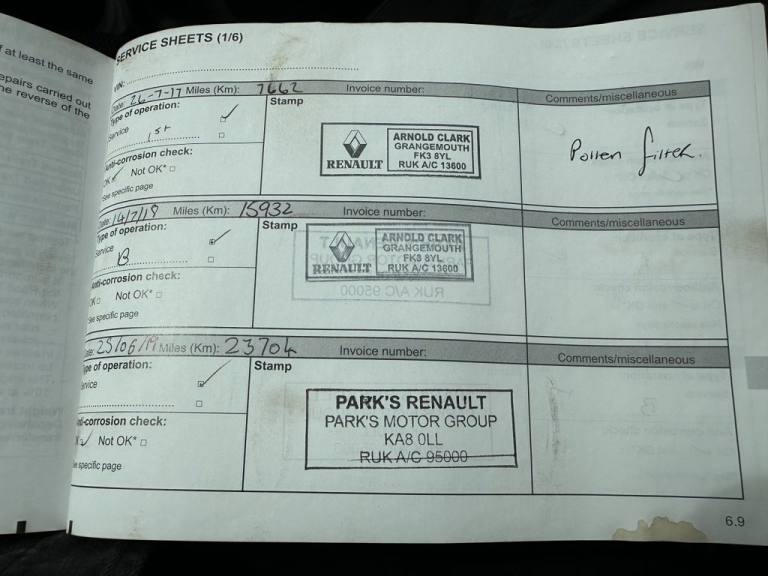 f at least the same
epairs carried out
he reverse of the
SERVICE SHEETS (1/6)
VIN:
Date: 26-7-17 Miles (Km): 7662 Invoice number: Comments/miscellaneous
Type of operation: Stamp
Service
1st
Anti-corrosion check:
OK Not OK*
See specific page
RENAULT
ARNOLD CLARK
GRANGEMOUTH
FK3 8YL
RUK A/C 13600
Pollen filter.
Date: 14/7/18 Miles (Km): 15932 Invoice number: Comments/miscellaneous
Type of operation: Stamp
Service
B
Anti-corrosion check:
OK Not OK*
See specific page
RENAULT
ARNOLD CLARK
GRANGEMOUTH
FK3 8YL
RUK A/C 13600
Date: 25/06/19 Miles (Km): 23704 Invoice number: Comments/miscellaneous
Type of operation: Stamp
Service
Anti-corrosion check:
Not OK*
See specific page
PARK'S RENAULT
PARK'S MOTOR GROUP
KA8 0LL
RUK A/C 95000
6.9